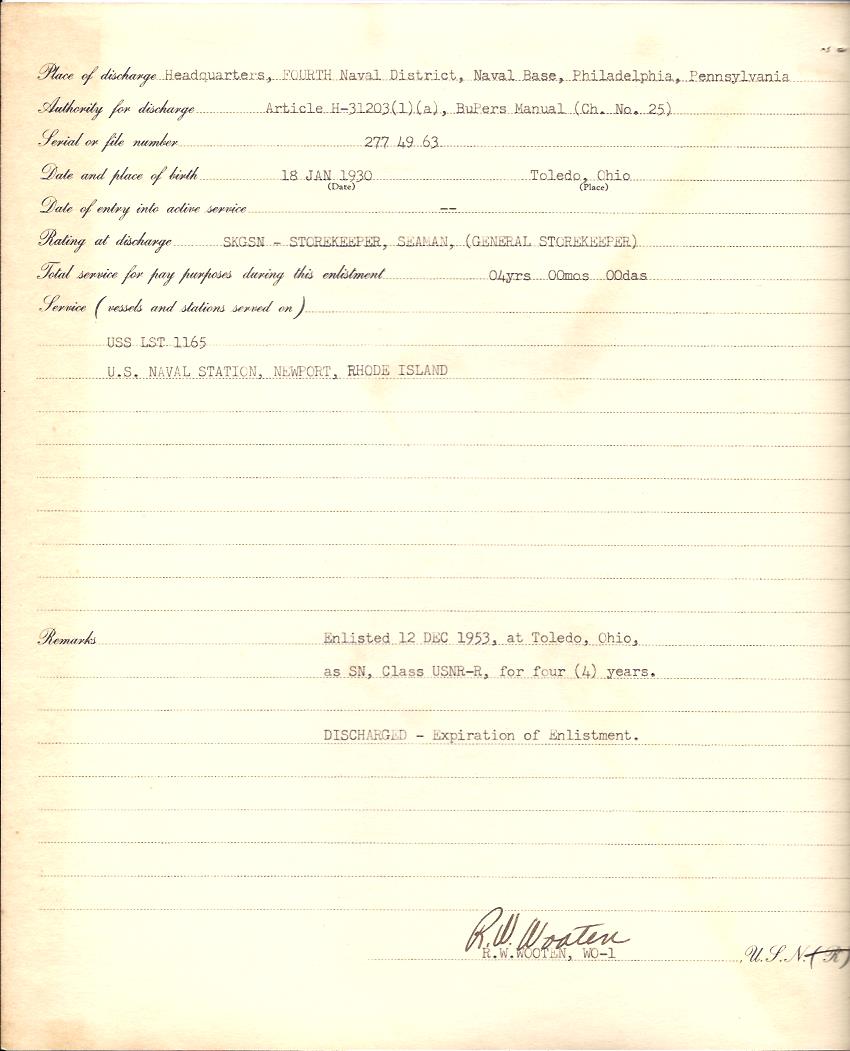 Place of discharge Headquarters, FOURTH Naval District, Naval Base, Philadelphia, Pennsylvania
Authority for discharge Article H-31203(1)(a), BuPers Manual (Ch. No. 25)
Serial or file number 277 49 63
Date and place of birth 18 JAN 1930 Toledo, Ohio
(Date) (Place)
Date of entry into active service --
Rating at discharge SKGSN - STOREKEEPER, SEAMAN, (GENERAL STOREKEEPER)
Total service for pay purposes during this enlistment 04yrs 00mos 00das
Service (vessels and stations served on)
USS LST 1165
U.S. NAVAL STATION, NEWPORT, RHODE ISLAND
Remarks Enlisted 12 DEC 1953, at Toledo, Ohio,
as SN, Class USNR-R, for four (4) years.
DISCHARGED - Expiration of Enlistment.
R.W. Wooten
R.W.WOOTEN, WO-1 , U.S.N. (R)